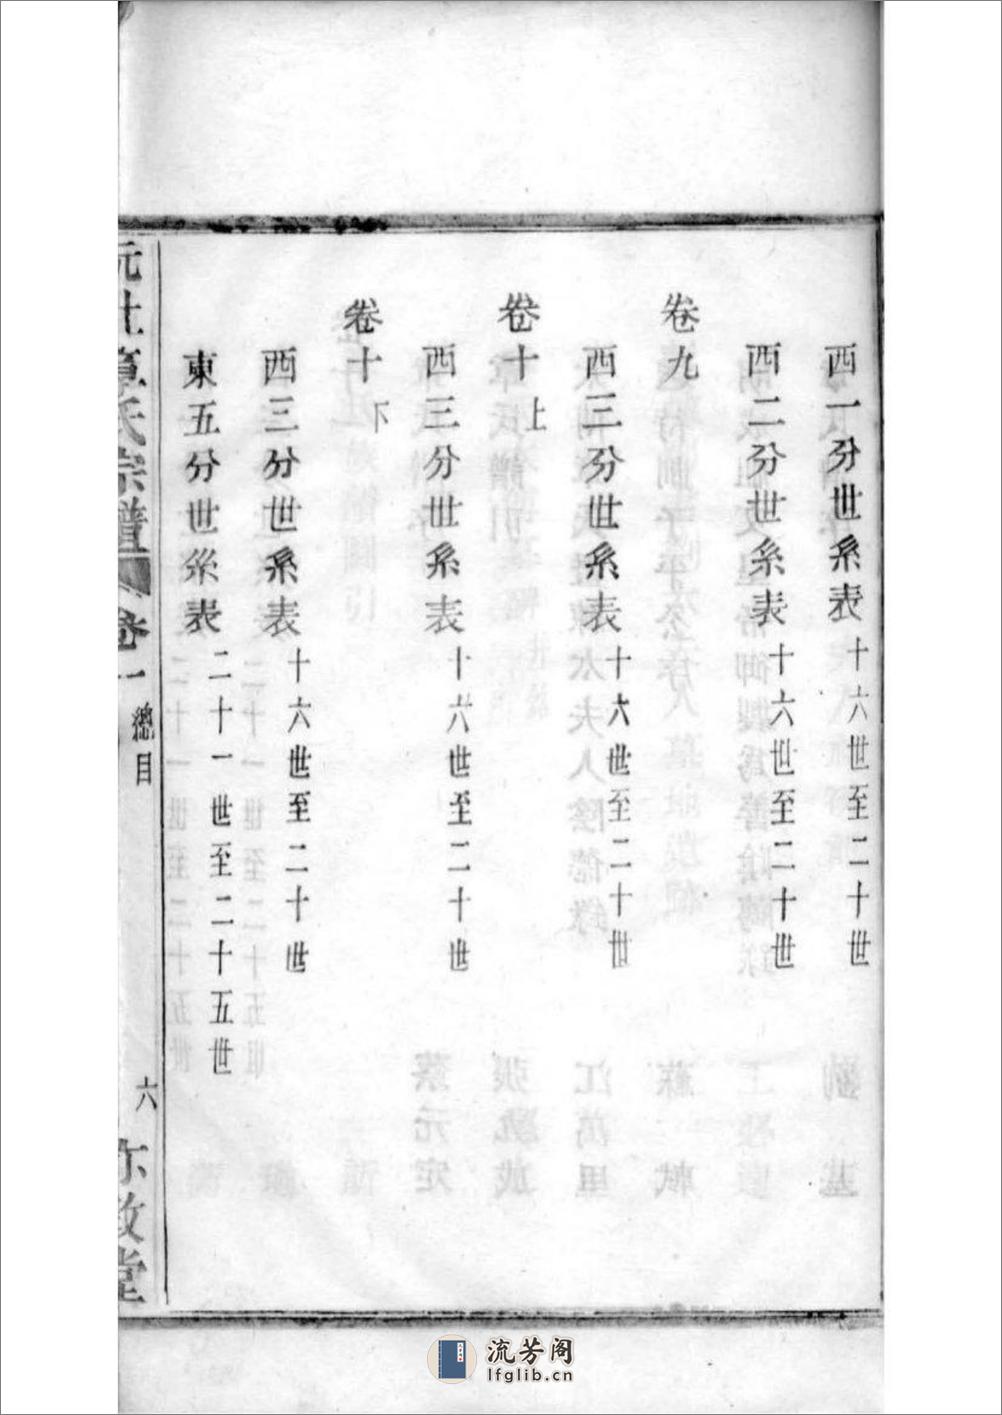 西一分世系表十六世至二十世
西二分世系表十六世至二十世
卷九
西三分世系表十六世至二十世
卷十上
西三分世系表十六世至二十世
卷十下
西三分世系表十六世至二十世
東五分世系表二十一世至二十五世
阮社章氏宗譜 卷一 總目 六 亦政堂
流芳阁
lfglib.cn